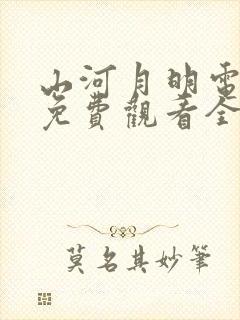 山河月明電
免費觀看全
莫名其妙筆